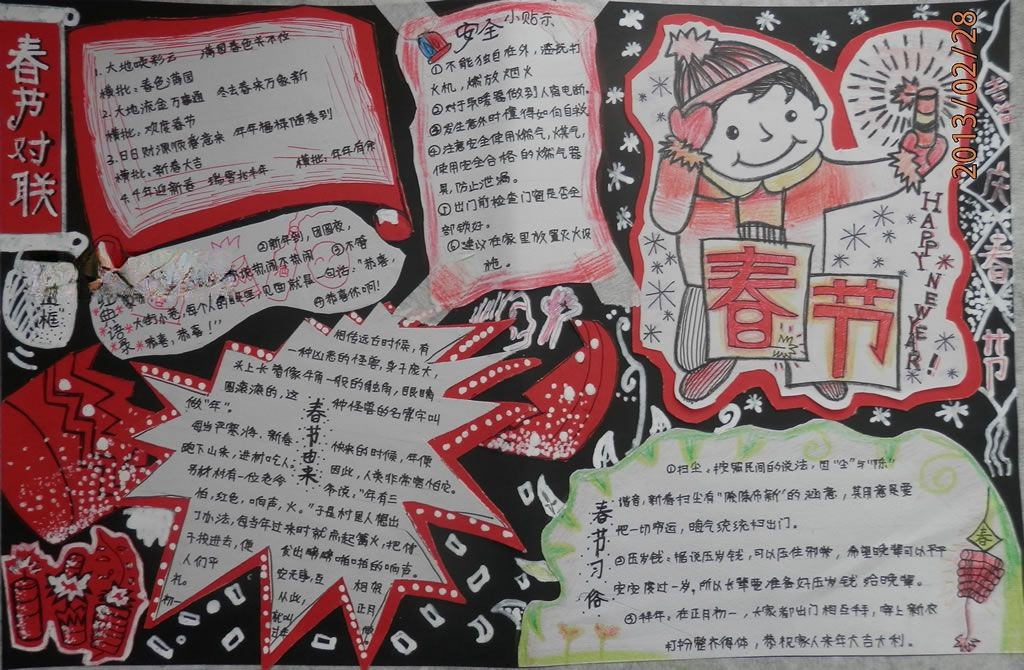 春节对联
1.大地映彩云 满园春色关不住
横批:春色满园
2.大地流金万事通 冬去春来万象新
横批:欢度春节
3.日日财源顺意来 年年福禄随春到
横批:新春大吉
4.牛年迎新春 瑞雪兆丰年 横批:年年有余
安全小贴示
①不能独自在外,燃放打
火机,燃放烟火
②对于取暖器做到人离电断。
③发生意外时懂得如何自救
④注意安全使用燃气,煤气,
使用安全合格的燃气器
具,防止泄漏。
⑤出门前检查门窗是否全
部锁好。
⑥建议在家里放置灭火设
施。
2013/02/28
欢庆春节
HAPPY NEW YEAR!
春节
②新年到,团圆夜,
大街小巷,每个人的眼里,见面就是一句话:"恭喜,
恭喜,恭喜!!
④恭喜你啊!
春节由来
相传远古时候,有
一种凶恶的怪兽,身子庞大,
头上长着像牛角一般的独角,眼睛
圆滚滚的,这种怪兽的名字叫
做"年"。
每当严寒将,新春快来的时候,年便
跑下山来,进村吃人。因此,人类非常害怕它。
爷说,"年有三
怕,红色,响声,火。"于是村里人想出
了办法,每当年过来时就点起篝火,把竹
子投进去,便发出噼噼啪啪的响声。
人们平安无事,互相祝
礼。从此,正月
初一就叫
过年
春节习俗
①扫尘。按照民间的说法,因"尘"与"陈"
谐音,新春扫尘有"除陈布新"的涵意,其用意是要
把一切穷运,晦气统统扫出门。
②压岁钱:据说压岁钱,可以压住邪祟,希望晚辈可以平平
安安度过一岁,所以长辈要准备好压岁钱给晚辈。
③拜年。在正月初一,大家都出门相互拜,穿上新衣
打扮整齐得体,恭祝家人来年大吉大利。
春